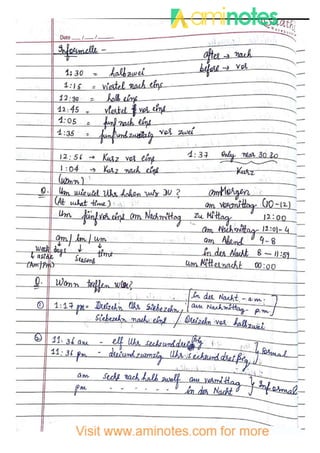 aminotes
Date ___/___/___
Informelle -
after → nach
before → vor
1:30 = halb zwei
1:15 = viertel nach eins
12:30 = halb eins
12:45 = viertel vor eins
1:05 = fünf nach eins
1:35 = fünfundzwanzig vor zwei
12:56 → Kurz vor eins
1:37 only near 30
1:04 → Kurz nach eins
Kurz
(wann)
Q. Um wieviel Uhr haben wir DU ?
am Morgen
(At what time)
am vormittag (10-12)
Um fünf vor eins am Nachmittag
zu Mittag 12:00
am Nachmittag 12:01-4
am Abend 4-8
am / im / um
in der Nacht 8 - 11:59
time
um Mitternacht 00:00
(Am/Pm)
Q. Wann treffen wir?
in der Nacht - a.m.
am Nachmittag p.m.
① 1:17 pm = Dreizehn Uhr siebzehn /
siebzehn nach eins / Dreizehn vor halb zwei
② 11:36 am - elf Uhr sechsunddreißig
11:36 pm - dreiundzwanzig Uhr sechsunddreißig
Formal
am sechs nach halb zwölf am vormittag
pm - - - - - - in der Nacht
Informal
Visit www.aminotes.com for more